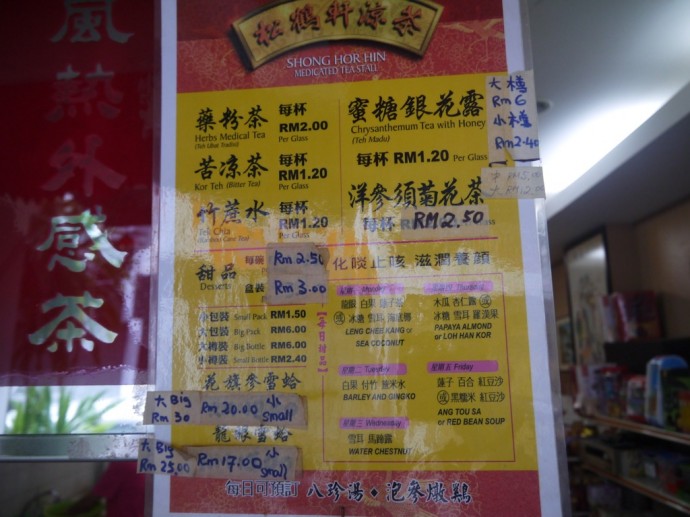 風熱外感茶
松鶴軒涼茶
SHONG HOR HIN
MEDICATED TEA STALL
藥粉茶 每杯
RM2.00
Herbs Medical Tea
Per Glass
苦凉茶 每杯
RM1.20
Kor Teh (Bitter Tea)
Per Glass
竹蔗水 每杯
RM1.20
Per Glass
甜品
Desserts
每碗 Rm 2.50
盒装 Rm 3.00
小包裝 Small Pack RM1.50
大包裝 Big Pack RM6.00
大樽裝 Big Bottle RM6.00
小樽裝 Small Bottle RM2.40
花旗參雪蛤
大 Big
Rm 30
Rm 20.00 小
small
龍眼雪蛤
大 Big
Rm 25.00
Rm 17.00 小
small
蜜糖銀花露
Chrysanthemum Tea with Honey
(Teh Madu)
每杯 RM1.20 Per Glass
大樽
Rm 6
小樽
Rm 2.40
洋參須菊花茶
每杯 RM2.50
化痰止咳 滋潤養顔
【每日甜品】
星期一 Monday
龍眼 白果 蓮子羹
或 冰糖 雪耳 海底椰
LENG CHEE KANG or
SEA COCONUT
星期二 Tuesday
白果 苡竹 薏米水
BARLEY AND GINGKO
星期三 Wednesday
雪耳 馬蹄露
WATER CHESTNUT
星期四 Thursday
木瓜 杏仁露 或
冰糖 雪耳 羅漢果
PAPAYA ALMOND
or LOH HAN KOR
星期五 Friday
蓮子 百合 紅豆沙
或 黑糯米 紅豆沙
ANG TOU SA
or RED BEAN SOUP
每日可預訂 八珍湯・泡參燉鷄